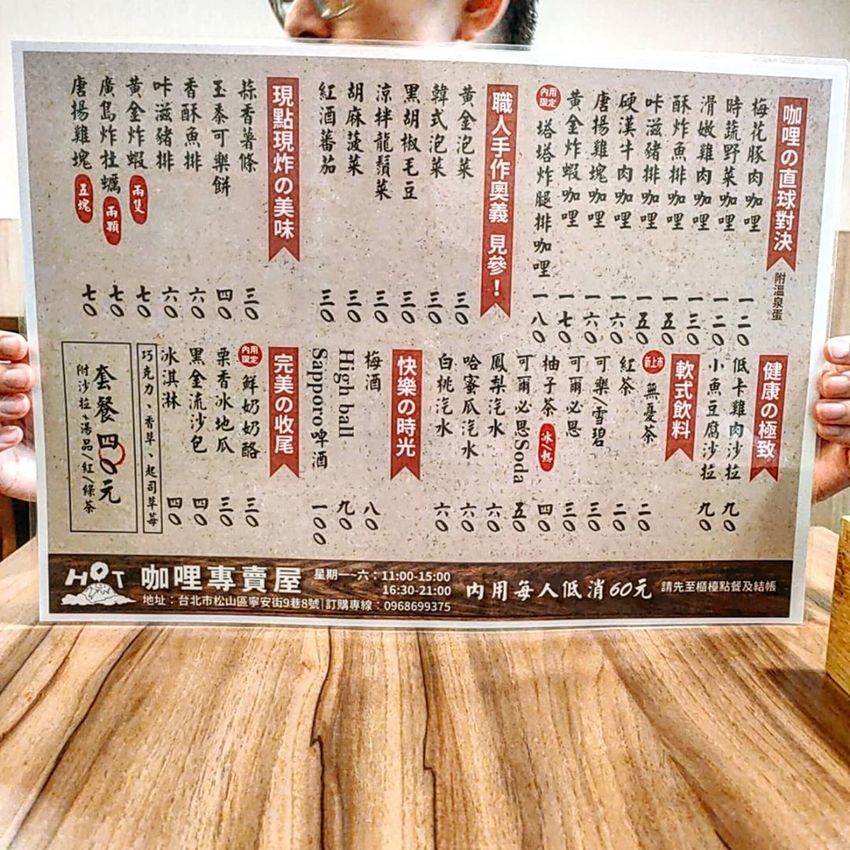 咖哩の直球對決 附溫泉蛋
梅花豚肉咖哩 一二〇
時蔬野菜咖哩 一二〇
滑嫩雞肉咖哩 一三〇
酥炸魚排咖哩 一五〇
咔滋豬排咖哩 一五〇
硬漢牛肉咖哩 一六〇
唐揚雞塊咖哩 一六〇
黃金炸蝦咖哩 一七〇
內用限定 塔塔炸腿排咖哩 一八〇
職人手作奧義 見參！
黃金泡菜 三〇
韓式泡菜 三〇
黑胡椒毛豆 三〇
涼拌龍鬚菜 三〇
胡麻菠菜 三〇
紅酒蕃茄 三〇
現點現炸の美味
蒜香薯條 三〇
玉黍可樂餅 四〇
香酥魚排 六〇
咔滋豬排 六〇
黃金炸蝦 兩隻 七〇
廣島炸牡蠣 兩顆 七〇
唐揚雞塊 五塊 七〇
健康の極致
低卡雞肉沙拉 九〇
小魚豆腐沙拉 九〇
軟式飲料
新上市 無憂茶 二〇
紅茶 二〇
可樂/雪碧 三〇
可爾必思 三〇
柚子茶 冰/熱 四〇
可爾必思Soda 五〇
鳳梨汽水 六〇
哈蜜瓜汽水 六〇
白桃汽水 六〇
快樂の時光
梅酒 八〇
High ball 九〇
Sapporo啤酒 一〇〇
完美の收尾
內用限定 鮮奶奶酪 三〇
栗香冰地瓜 三〇
黑金流沙包 四〇
冰淇淋 四〇
巧克力、香草、起司草莓
套餐四〇元
附沙拉、湯品/紅/綠茶
HOT 咖哩專賣屋
星期一~六：11:00-15:00
16:30-21:00
地址：台北市松山區寧安街9巷8號|訂購專線：0968699375
內用每人低消60元
請先至櫃檯點餐及結帳